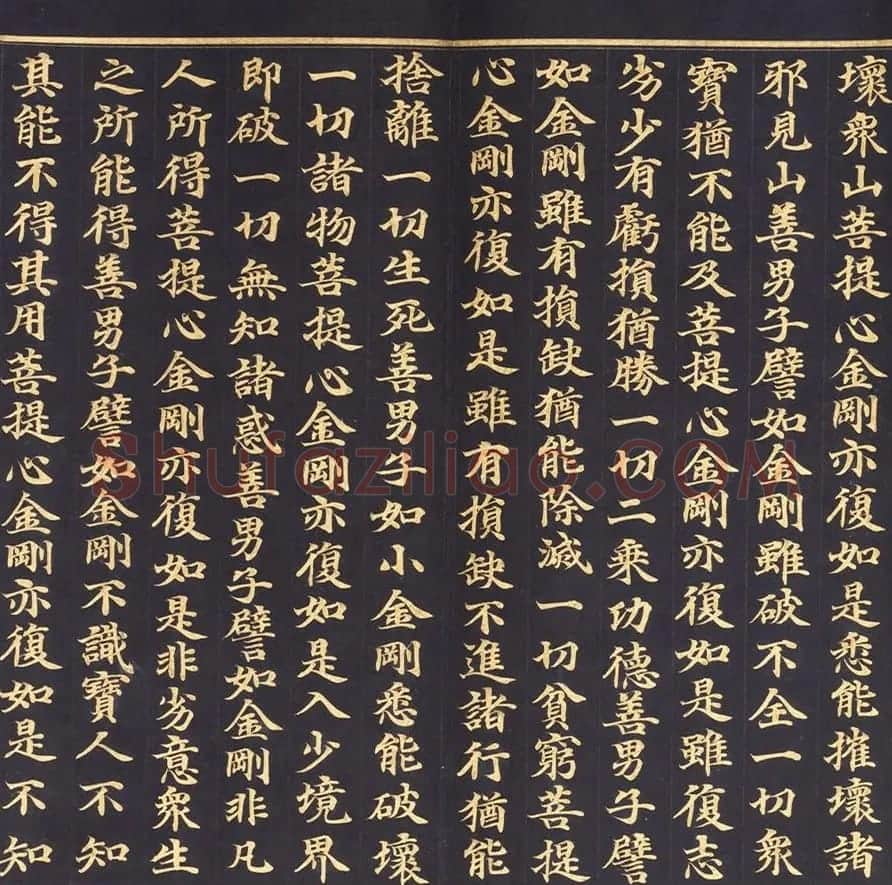 壞衆山菩提心金剛亦復如是悉能摧壞諸
邪見山善男子譬如金剛雖破不全一切衆
寶猶不能及菩提心金剛亦復如是雖復志
劣少有虧損猶勝一切二乘功德善男子譬
如金剛雖有損缺猶能除滅一切貧窮菩提
心金剛亦復如是雖有損缺不進諸行猶能
捨離一切生死善男子如小金剛悉能破壞
一切諸物菩提心金剛亦復如是入少境界
即破一切無知諸惑善男子譬如金剛非凡
人所得菩提心金剛亦復如是非劣意衆生
之所能得善男子譬如金剛不識寶人不知
其能不得其用菩提心金剛亦復如是不知
Shufaziliao.com